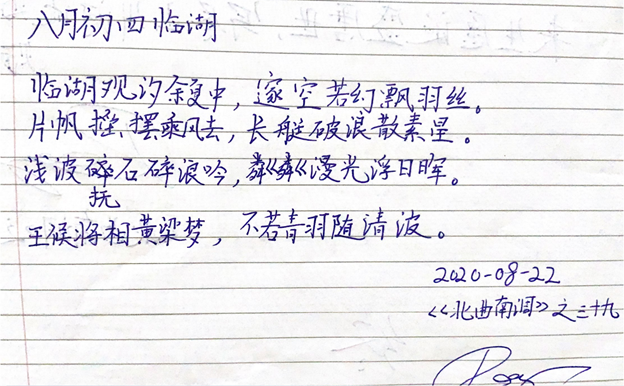 八月初四临湖
临湖观汐余复中，遂空若幻飘羽丝。
片帆摇摆乘风去，长艇破浪散素星。
浅波碎石碎浪吟，粼粼漫光浮日晖。
抚
王侯将相黄梁梦，不若青羽随清波。
2020-08-22
<<北曲南洄>>之三十九